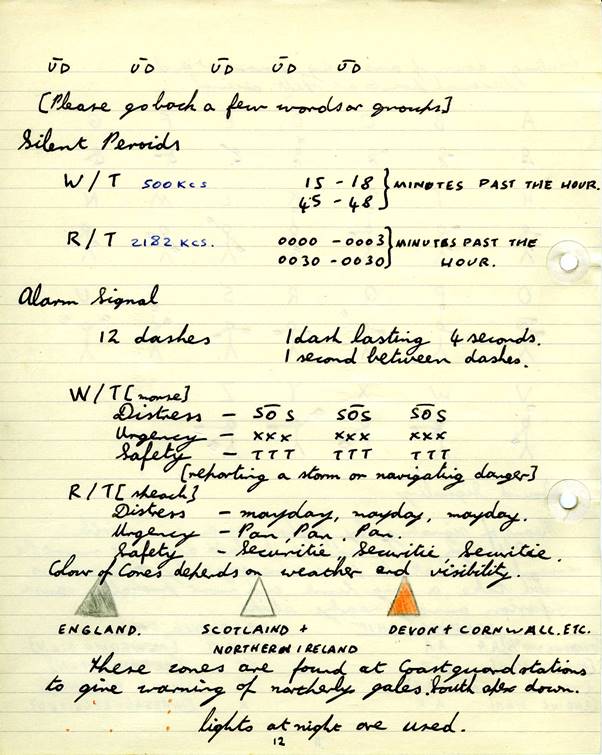 ŪD ŪD ŪD ŪD ŪD
[Please go back a few words or groups]
Silent Peroids
W/T 500 Kcs 15 - 18 } MINUTES PAST THE HOUR.
45 - 48
R/T 2182 Kcs. 0000 - 0003 } MINUTES PAST THE
0030 - 0030 HOUR.
Alarm Signal
12 dashes 1 dash lasting 4 seconds.
1 second between dashes.
W/T [morse]
Distress - SŌS SŌS SŌS
Urgency - xxx xxx xxx
Safety - TTT TTT TTT
[reporting a storm or navigating danger]
R/T [speach]
Distress - mayday, mayday, mayday.
Urgency - Pan, Pan, Pan.
Safety - Securitie, Securitie, Securitie.
Colour of Cones depends on weather and visibility.
ENGLAND. SCOTLAIND + DEVON + CORNWALL. ETC.
NORTHERN IRELAND
These cones are found at Coastguard stations
to give warning of northerly gales. South apex down.
lights at night are used.
12